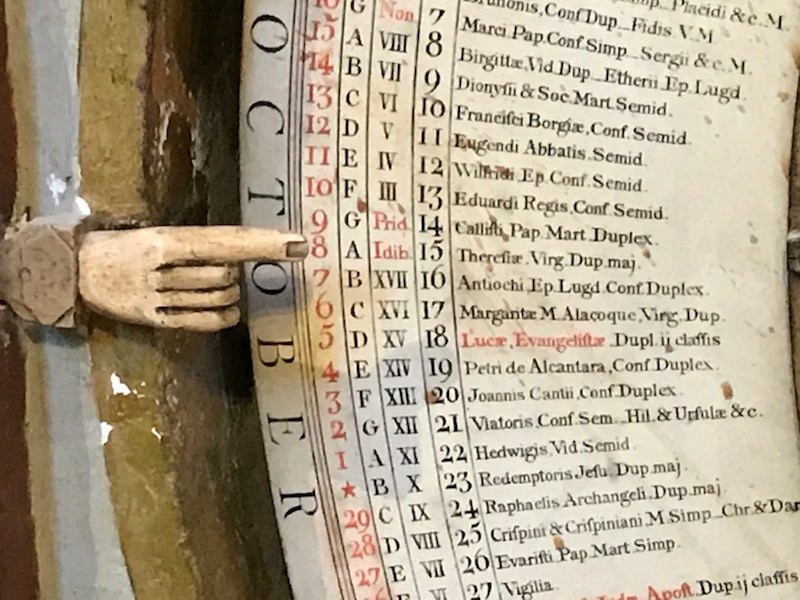 OCTOBER
G Non. 7 Brunonis, Conf Dup_Fidis V.M.
15 A VIII 8 Marci Pap. Conf. Simp_Sergii & c. M.
14 B VII 9 Birgittæ, Vid. Dup_Etherii Ep. Lugd.
13 C VI 10 Dionysii & Soc. Mart. Semid.
12 D V 11 Francisci Borgiæ, Conf. Semid.
11 E IV 12 Eugendi Abbatis. Semid.
10 F III 13 Wilfridi Ep. Conf. Semid.
9 G Prid. 14 Eduardi Regis, Conf. Semid.
8 A Idib. 15 Callisti, Pap. Mart. Duplex.
7 B XVII 16 Theresiæ. Virg. Dup. maj.
6 C XVI 17 Antiochi Ep. Lugd. Conf. Duplex.
5 D XV 18 Margaritæ M. Alacoque, Virg. Dup.
4 E XIV 19 Lucæ, Evangelistæ. Dupl. ij classis
3 F XIII 20 Petri de Alcantara, Conf. Duplex.
2 G XII 21 Joannis Cantii, Conf. Duplex.
1 A XI 22 Viatoris, Conf. Sem_Hil. & Ursulæ & c.
* B X 23 Hedwigis Vid. Semid.
29 C IX 24 Redemptoris Jesu. Dup. maj.
28 D VIII 25 Raphaelis Archangeli. Dup. maj.
27 E VII 26 Crispini & Crispiniani M. Simp_Chr. & Dar
VI 27 Evaristi Pap. Mart. Simp.
Vigilia.
Apost. Dup. ij classis
Placidi & c. M.